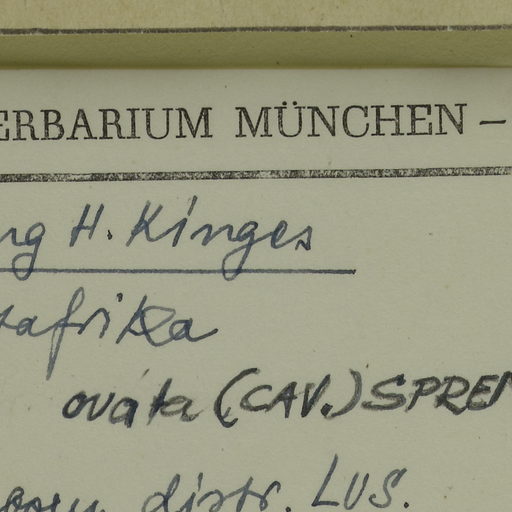 ERBARIUM MÜNCHEN –
ng H. Kinges
tafrika
ovata (CAV.) SPREN
born distr. LUS.